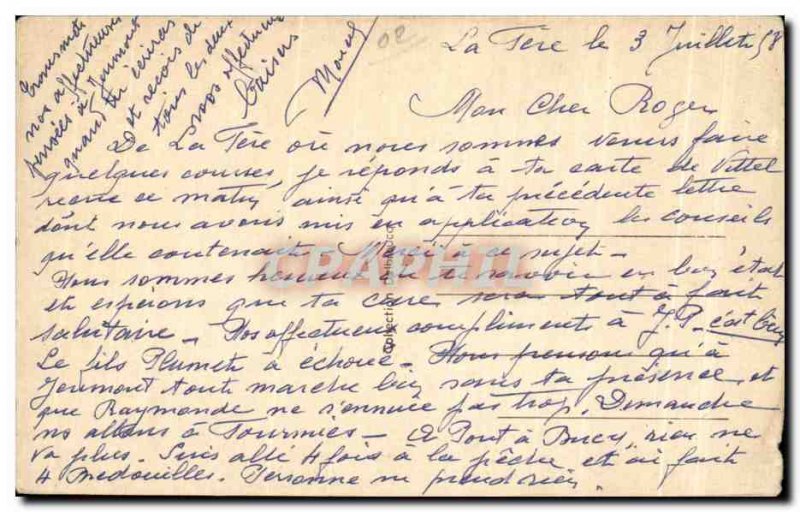 La Fère le 3 Juillet 58
Mon Cher Roger
De La Fère où nous sommes venus faire
quelques courses, je réponds à ta carte de Vittel
reçue ce matin, ainsi qu'à ta précédente lettre
dont nous avons mis en application les conseils
qu'elle contenait. Merci à ce sujet -
Nous sommes heureux de te savoir en bon état
et espérons que ta cure sera tout à fait
salutaire - Nos affectueux compliments à J.P. c'est bien
Le fils Plumet à échoué - Nous pensons qu'à
Jeumont tout marche bien sans ta présence et
que Raymonde ne s'ennuie pas trop. Dimanche
ns allons à Fourmies - A Pont à Bucy, rien ne
va plus. Suis allé 4 fois à la pêche et ai fait
4 bredouilles. Personne ne prend rien.
Transmets
nos affectueuses
pensées à Jeumont
quand tu écriras
et reçois de
tous les deux
nos affectueux
baisers
02
CPAPHIL
Collection